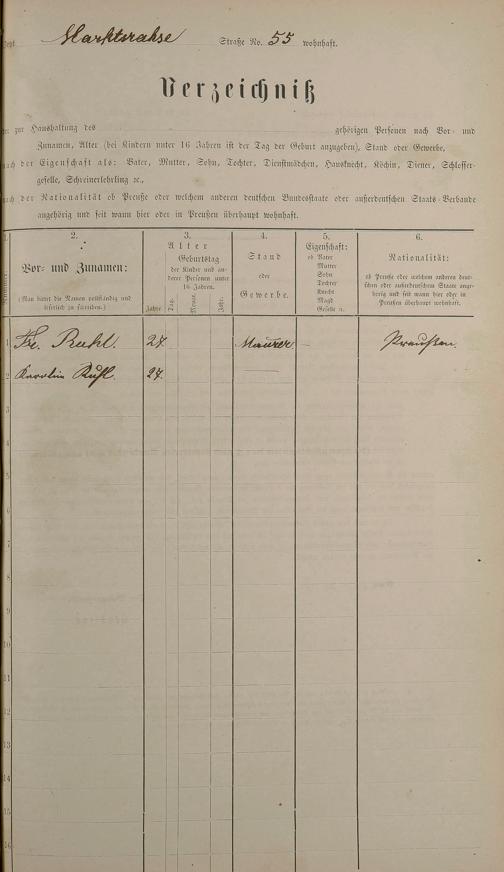 Marktstrasse Straße No. 55 wohnhaft.
Verzeichniß
der zur Haushaltung des gehörigen Personen nach Vor- und
Zunamen, Alter (bei Kindern unter 16 Jahren ist der Tag der Geburt anzugeben), Stand oder Gewerbe,
nach der Eigenschaft als: Vater, Mutter, Sohn, Tochter, Dienstmädchen, Hausknecht, Köchin, Diener, Schlosser-
geselle, Schreinerlehrling ꝛc.,
nach der Nationalität ob Preuße oder welchem anderen deutschen Bundesstaate oder außerdeutschen Staats-Verbande
angehörig und seit wann hier oder in Preußen überhaupt wohnhaft.
1. 2. 3. 4. 5. 6.
Vor- und Zunamen:
(Man bittet die Namen vollständig und
leserlich zu schreiben.)
Alter
Geburtstag
der Kinder und an-
derer Personen unter
16 Jahren.
Jahre Tag. Monat. Jahr.
Stand
oder
Gewerbe.
Eigenschaft:
ob Vater
Mutter
Sohn
Tochter
Knecht
Magd
Geselle u.
Nationalität:
ob Preuße oder welchem anderen deut-
schen oder außerdeutschen Staate ange-
hörig und seit wann hier oder in
Preußen überhaupt wohnhaft.
1 Fr. Ruhl. 27. Maurer – Preußen.
2 Karolin Ruhl. 27. —
3
4
5
6
7
8
9
10
11
12
13
14
15
16